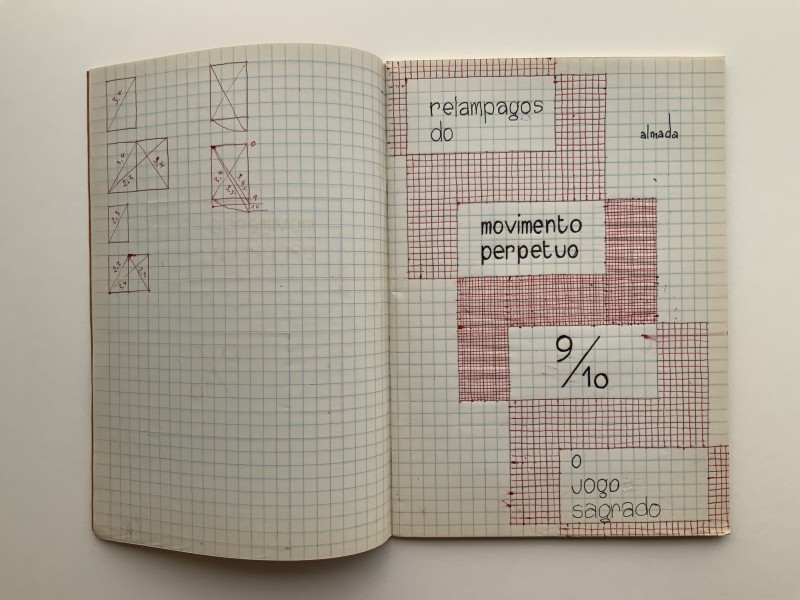 relampagos
do
almada
movimento
perpetuo
9/10
o
jogo
sagrado